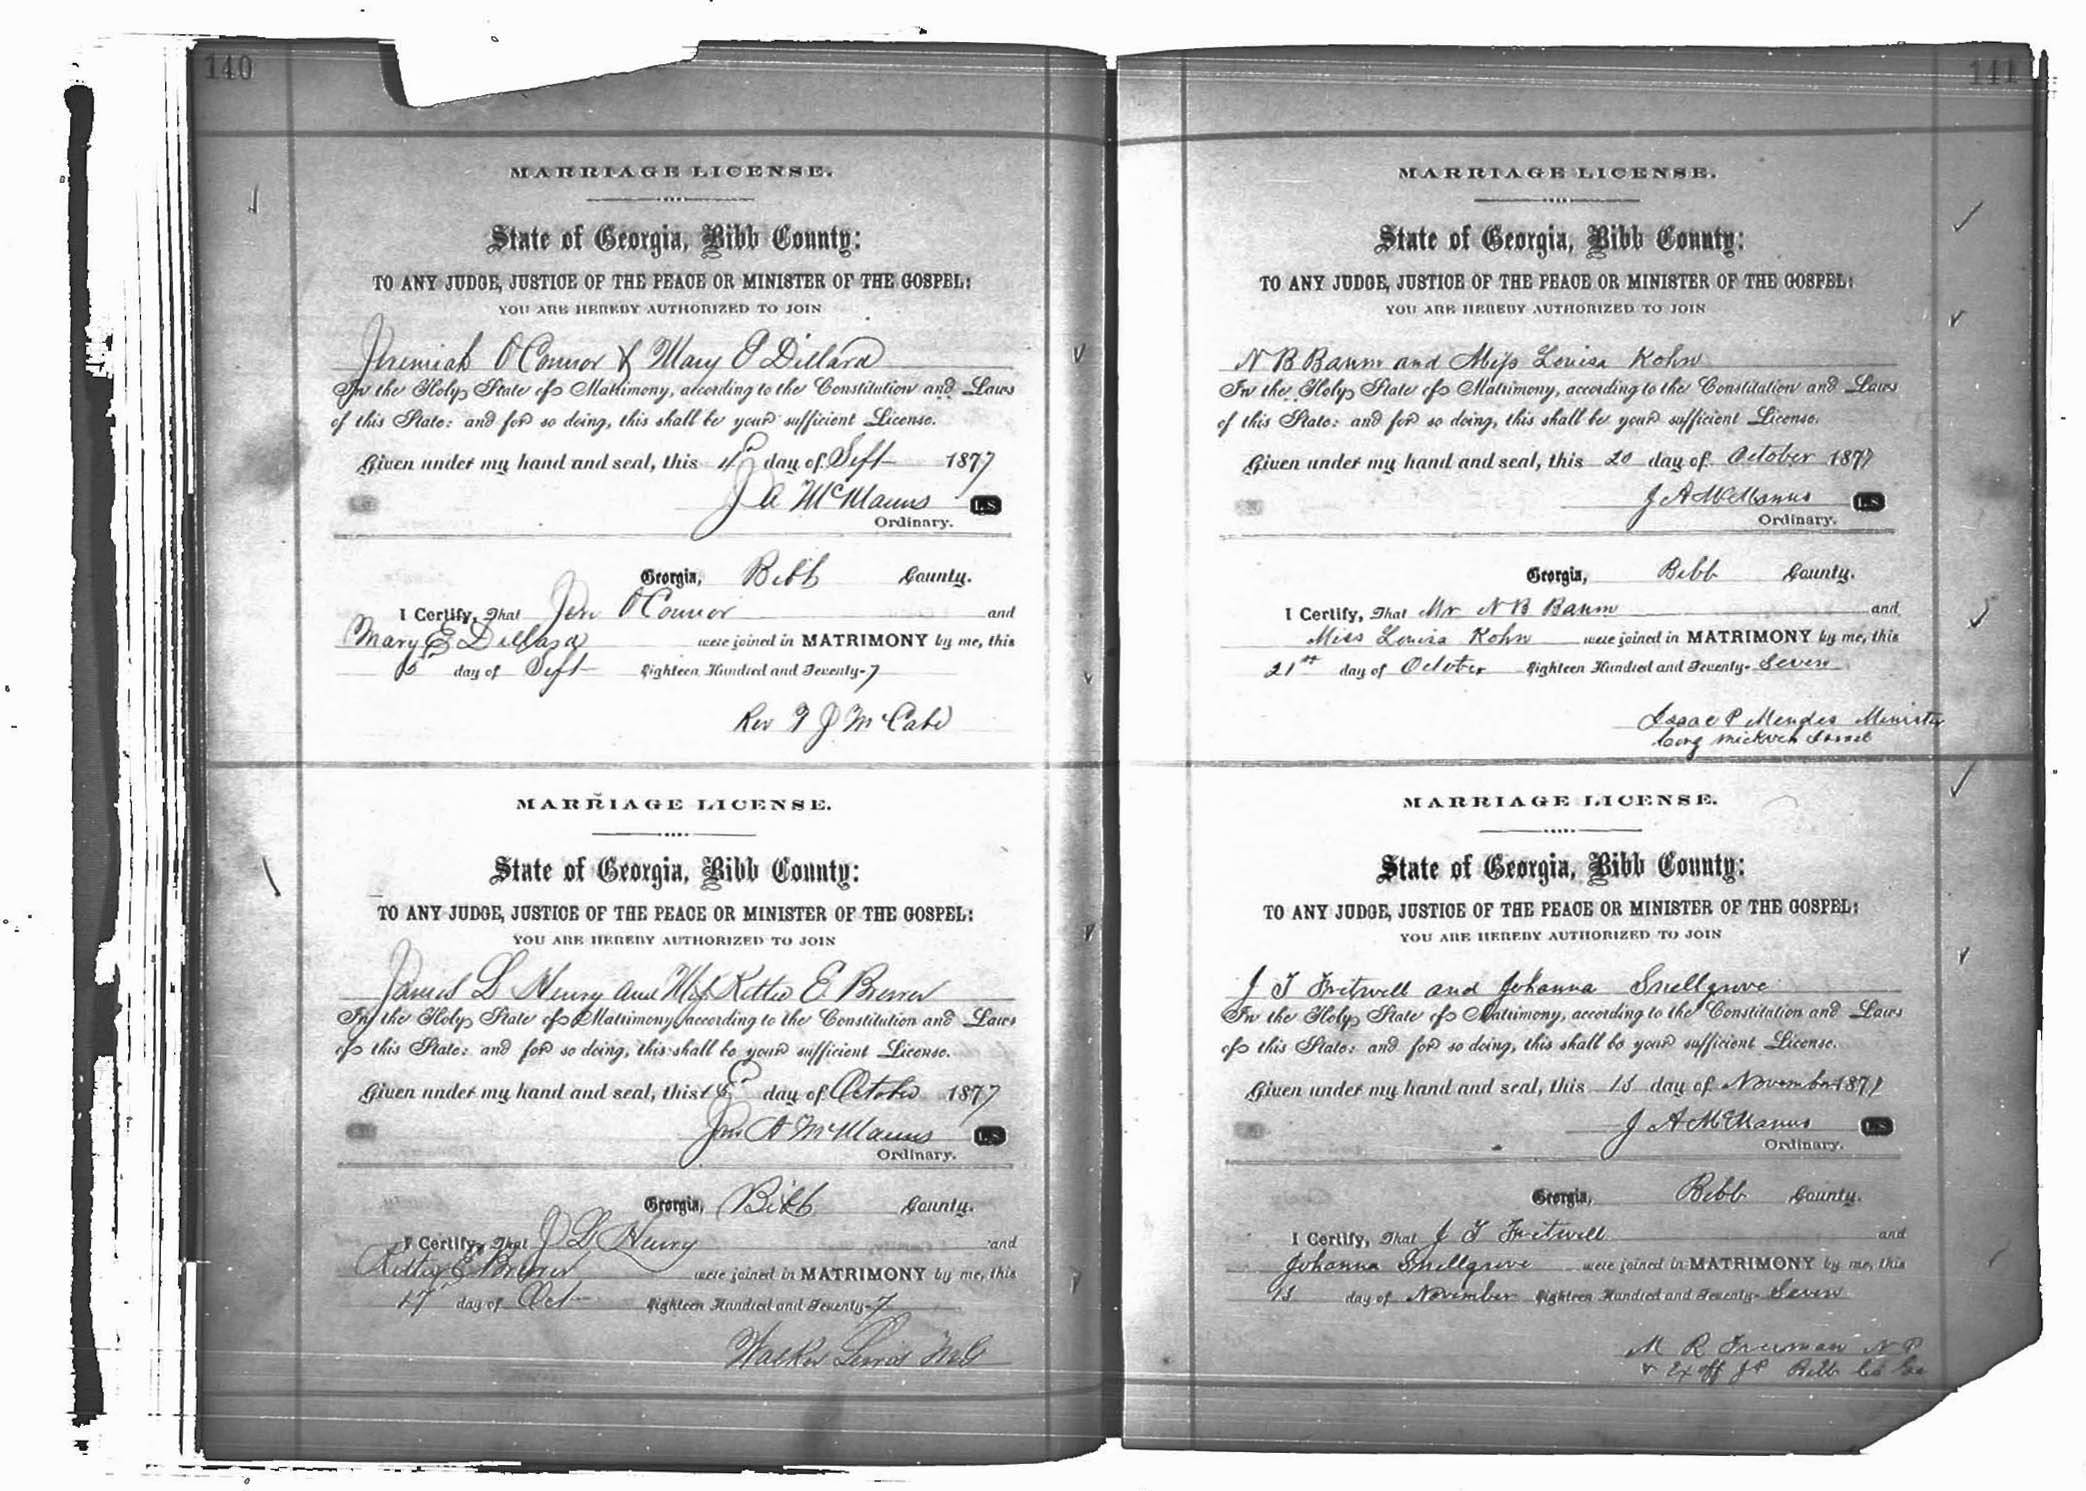 140
MARRIAGE LICENSE.
State of Georgia, Bibb County:
TO ANY JUDGE, JUSTICE OF THE PEACE OR MINISTER OF THE GOSPEL:
YOU ARE HEREBY AUTHORIZED TO JOIN
Jeremiah O'Connor & Mary E Dillard
In the Holy State of Matrimony, according to the Constitution and Laws
of this State: and for so doing, this shall be your sufficient License.
Given under my hand and seal, this 4th day of Sept 1877
J A McManus L.S
Ordinary.
Georgia, Bibb County.
I Certify, That Jere O'Connor and
Mary E Dillard were joined in MATRIMONY by me, this
day of Sept Eighteen Hundred and Seventy-7
Rev J McCabe
MARRIAGE LICENSE.
State of Georgia, Bibb County:
TO ANY JUDGE, JUSTICE OF THE PEACE OR MINISTER OF THE GOSPEL:
YOU ARE HEREBY AUTHORIZED TO JOIN
James L Henry and Miss Kittie E. Brewer
In the Holy State of Matrimony, according to the Constitution and Laws
of this State: and for so doing, this shall be your sufficient License.
Given under my hand and seal, this day of October 1877
Jno A McManus L.S
Ordinary.
Georgia, Bibb County.
I Certify, That J L Henry and
Kittie E Brewer were joined in MATRIMONY by me, this
17 day of Oct Eighteen Hundred and Seventy-7
Walker Lewis M G
141
MARRIAGE LICENSE.
State of Georgia, Bibb County:
TO ANY JUDGE, JUSTICE OF THE PEACE OR MINISTER OF THE GOSPEL:
YOU ARE HEREBY AUTHORIZED TO JOIN
N B Baum and Miss Louisa Kohn
In the Holy State of Matrimony, according to the Constitution and Laws
of this State: and for so doing, this shall be your sufficient License.
Given under my hand and seal, this 20 day of October 1877
J A McManus L.S
Ordinary.
Georgia, Bibb County.
I Certify, That Mr N B Baum and
Miss Louisa Kohn were joined in MATRIMONY by me, this
21st day of October Eighteen Hundred and Seventy-Seven
Isaac P Mendes Minister
Cong Mickveh Israel
MARRIAGE LICENSE.
State of Georgia, Bibb County:
TO ANY JUDGE, JUSTICE OF THE PEACE OR MINISTER OF THE GOSPEL:
YOU ARE HEREBY AUTHORIZED TO JOIN
J T Fritwell and Johanna Snellgrove
In the Holy State of Matrimony, according to the Constitution and Laws
of this State: and for so doing, this shall be your sufficient License.
Given under my hand and seal, this 15 day of November 1877
J A McManus L.S
Ordinary.
Georgia, Bibb County.
I Certify, That J T Fritwell and
Johanna Snellgrove were joined in MATRIMONY by me, this
15 day of November Eighteen Hundred and Seventy-Seven
M R Freeman N P
& Ex off J P Bibb Co Ga